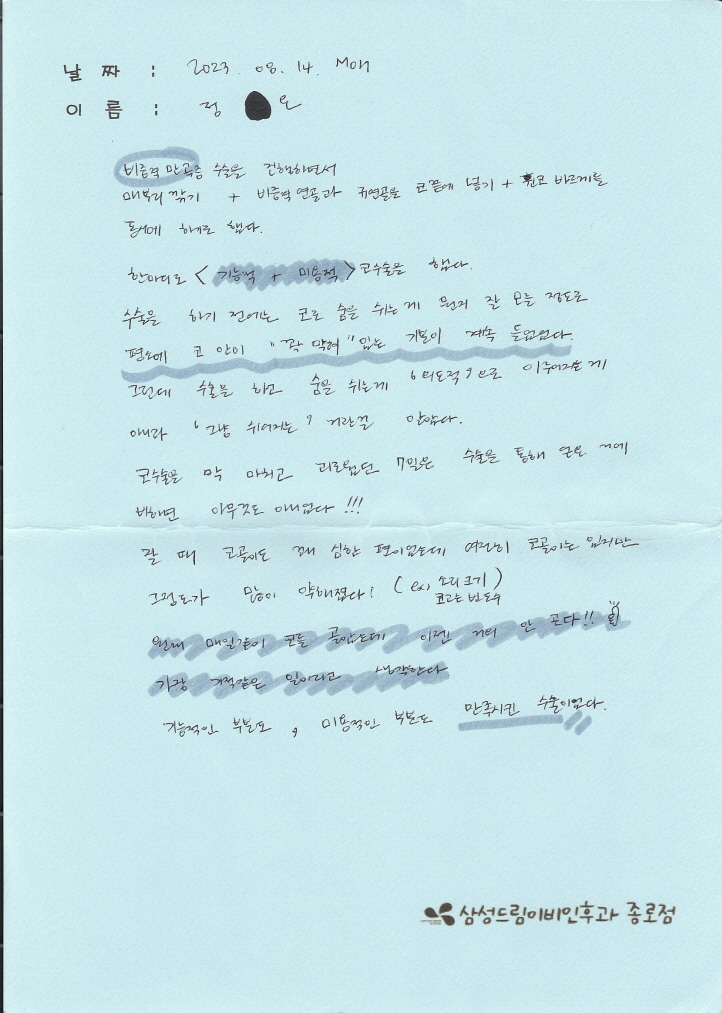 날 짜 : 2023. 08. 14. Mon
이 름 : 정
비중격 만곡증 수술을 진행하면서
매부리 깎기 + 비중격 연골과 귀연골을 코끝에 넣기 + 휜코 바르게를
동시에 하기로 했다.
한마디로 <기능적 + 미용적> 코수술을 했다.
수술을 하기 전에는 코로 숨을 쉬는게 뭔지 잘 모를 정도로
평소에 코 안이 "꽉 막혀" 있는 기분이 계속 들었었다.
그런데 수술을 하고 숨을 쉬는게 '의도적'으로 이루어지는게
아니라 '그냥 쉬어지는' 거란걸 알았다.
코수술을 막 마치고 괴로웠던 7일은 수술을 통해 얻은 거에
비하면 아무것도 아니었다!!!
잘 때 코골이도 꽤 심한 편이었는데 여전히 코골이는 있지만
그정도가 많이 약해졌다! (ex) 소리 크기)
코고는 빈도수
원래 매일같이 코를 골았는데 이젠 거의 안 곤다!!
가장 기적같은 일이라고 생각한다
기능적인 부분도, 미용적인 부분도 만족시킨 수술이었다.
삼성드림이비인후과 종로점